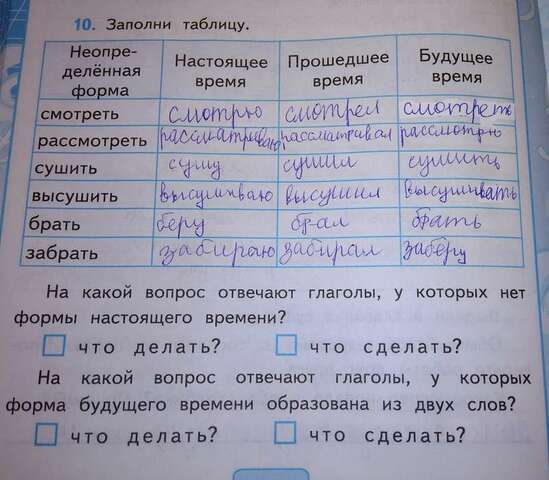 10. Заполни таблицу.
Неопре-
делённая
форма
Настоящее
время
Прошедшее
время
Будущее
время
смотреть смотрю смотрел смотреть
рассмотреть рассматриваю рассматривал рассмотрю
сушить сушу сушил сушить
высушить высушиваю высушил высушивать
брать беру брал брать
забрать забираю забирал заберу
На какой вопрос отвечают глаголы, у которых нет
формы настоящего времени?
что делать? что сделать?
На какой вопрос отвечают глаголы, у которых
форма будущего времени образована из двух слов?
что делать? что сделать?